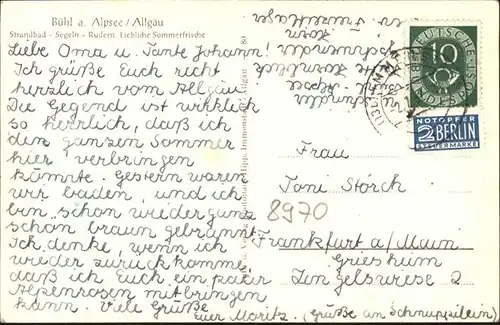 Bühl a. Alpsee / Allgäu
Strandbad - Segeln - Rudern. Liebliche Sommerfrische
Liebe Oma u. Tante Johann!
Ich grüße Euch recht
herzlich vom Allgäu.
Die Gegend ist wirklich
so herrlich, daß ich
den ganzen Sommer
hier verbringen
könnte. Gestern waren
wir baden, und ich
bin schon wieder ganz
schön braun gebrannt.
Ich denke, wenn ich
wieder zurückkomme,
daß ich Euch ein paar
Alpenrosen mitbringen
kann. Viele Grüße
Euer Moritz. (Grüße an Schnuppilein)
DEUTSCHE BUNDESPOST
10
NOTOPFER
2 BERLIN
STEUERMARKE
Frau
Toni Storch
8970
Frankfurt a/Main
Griesheim
Lingelswiese 2
Immenstadt Allgäu